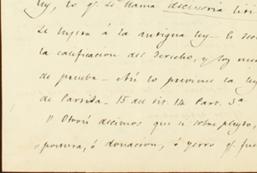 ley, lo q. se llama decisoria liti
se sujeta á la antigua ley
la calificacion del derecho, y los me
de prueba - Así lo previene la ley
de Partida. 15 del tit. 14 Part. 3ª
" Otrosí decimos que si sobre pleyto,
postura, ó donacion, ó yerro q. fue